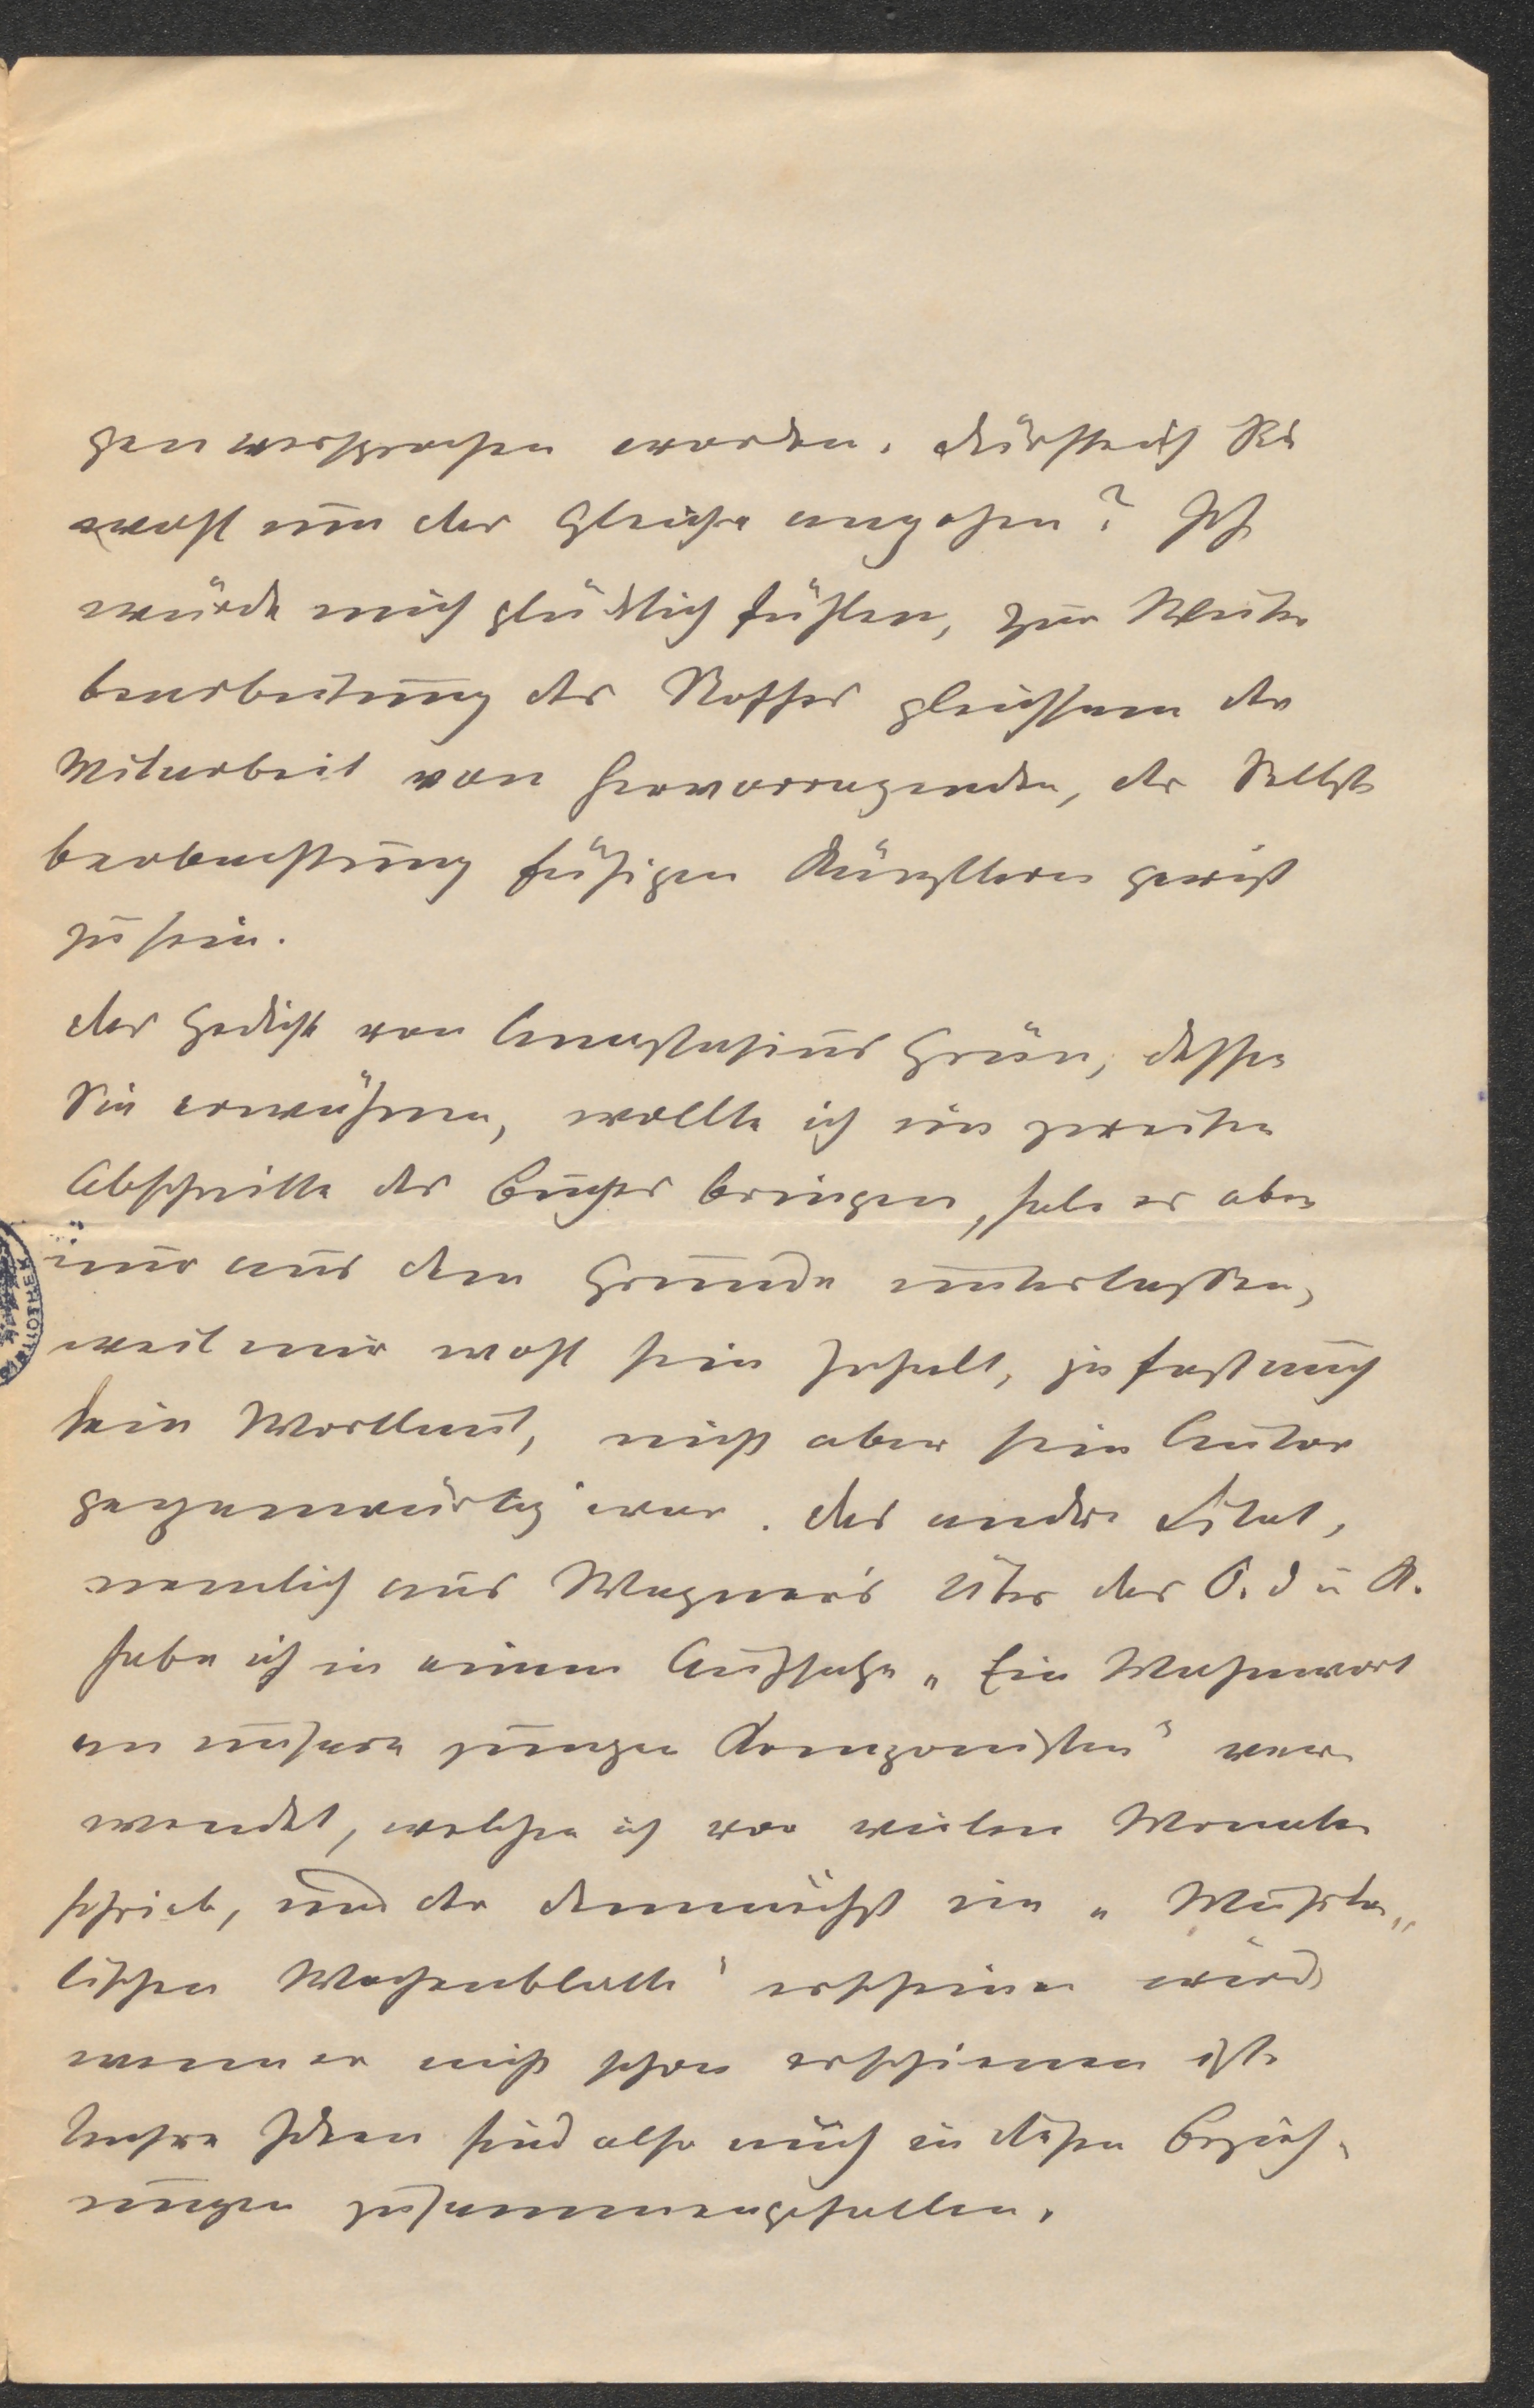 gen versprochen worden. Dürfte ich Sie
wohl um das Gleiche angehen? Ich
würde mich glücklich fühlen, zur Weiter
bearbeitung des Stoffes gleichsam der
Mitarbeit von hervorragenden, der Selbst
beobachtung fähigen Künstlern gewiß
zu sein.
Das Gedicht von Anastasius Grün, dessen
Sie erwähnen, wollte ich im zweiten
Abschnitte des Buches bringen, habe es aber
nur aus dem Grunde unterlassen,
weil mir wohl sein Inhalt, ja fast auch
sein Wortlaut, nicht aber sein Autor
gegenwärtig war. Das andre Citat,
nemlich aus Wagner's Über das O. d u K.
habe ich in einem Aufsatze „Ein Mahnwort
an unsere jungen Komponisten" ver
wendet, welchen ich vor vielen Monaten
schrieb, und der demnächst im „Musika„
lischen Wochenblatte" erscheinen wird
wenn er nicht schon erschienen ist.
Unsre Ideen sind also auch in diesen Bezieh„
ungen zusammengefallen.
BIBLIOTHEK